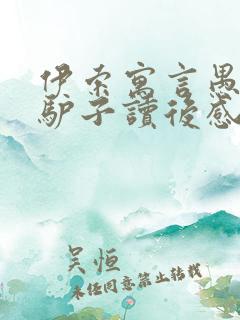 伊索寓言愚
驴子讀後感
吴恒
未经同意禁止转载